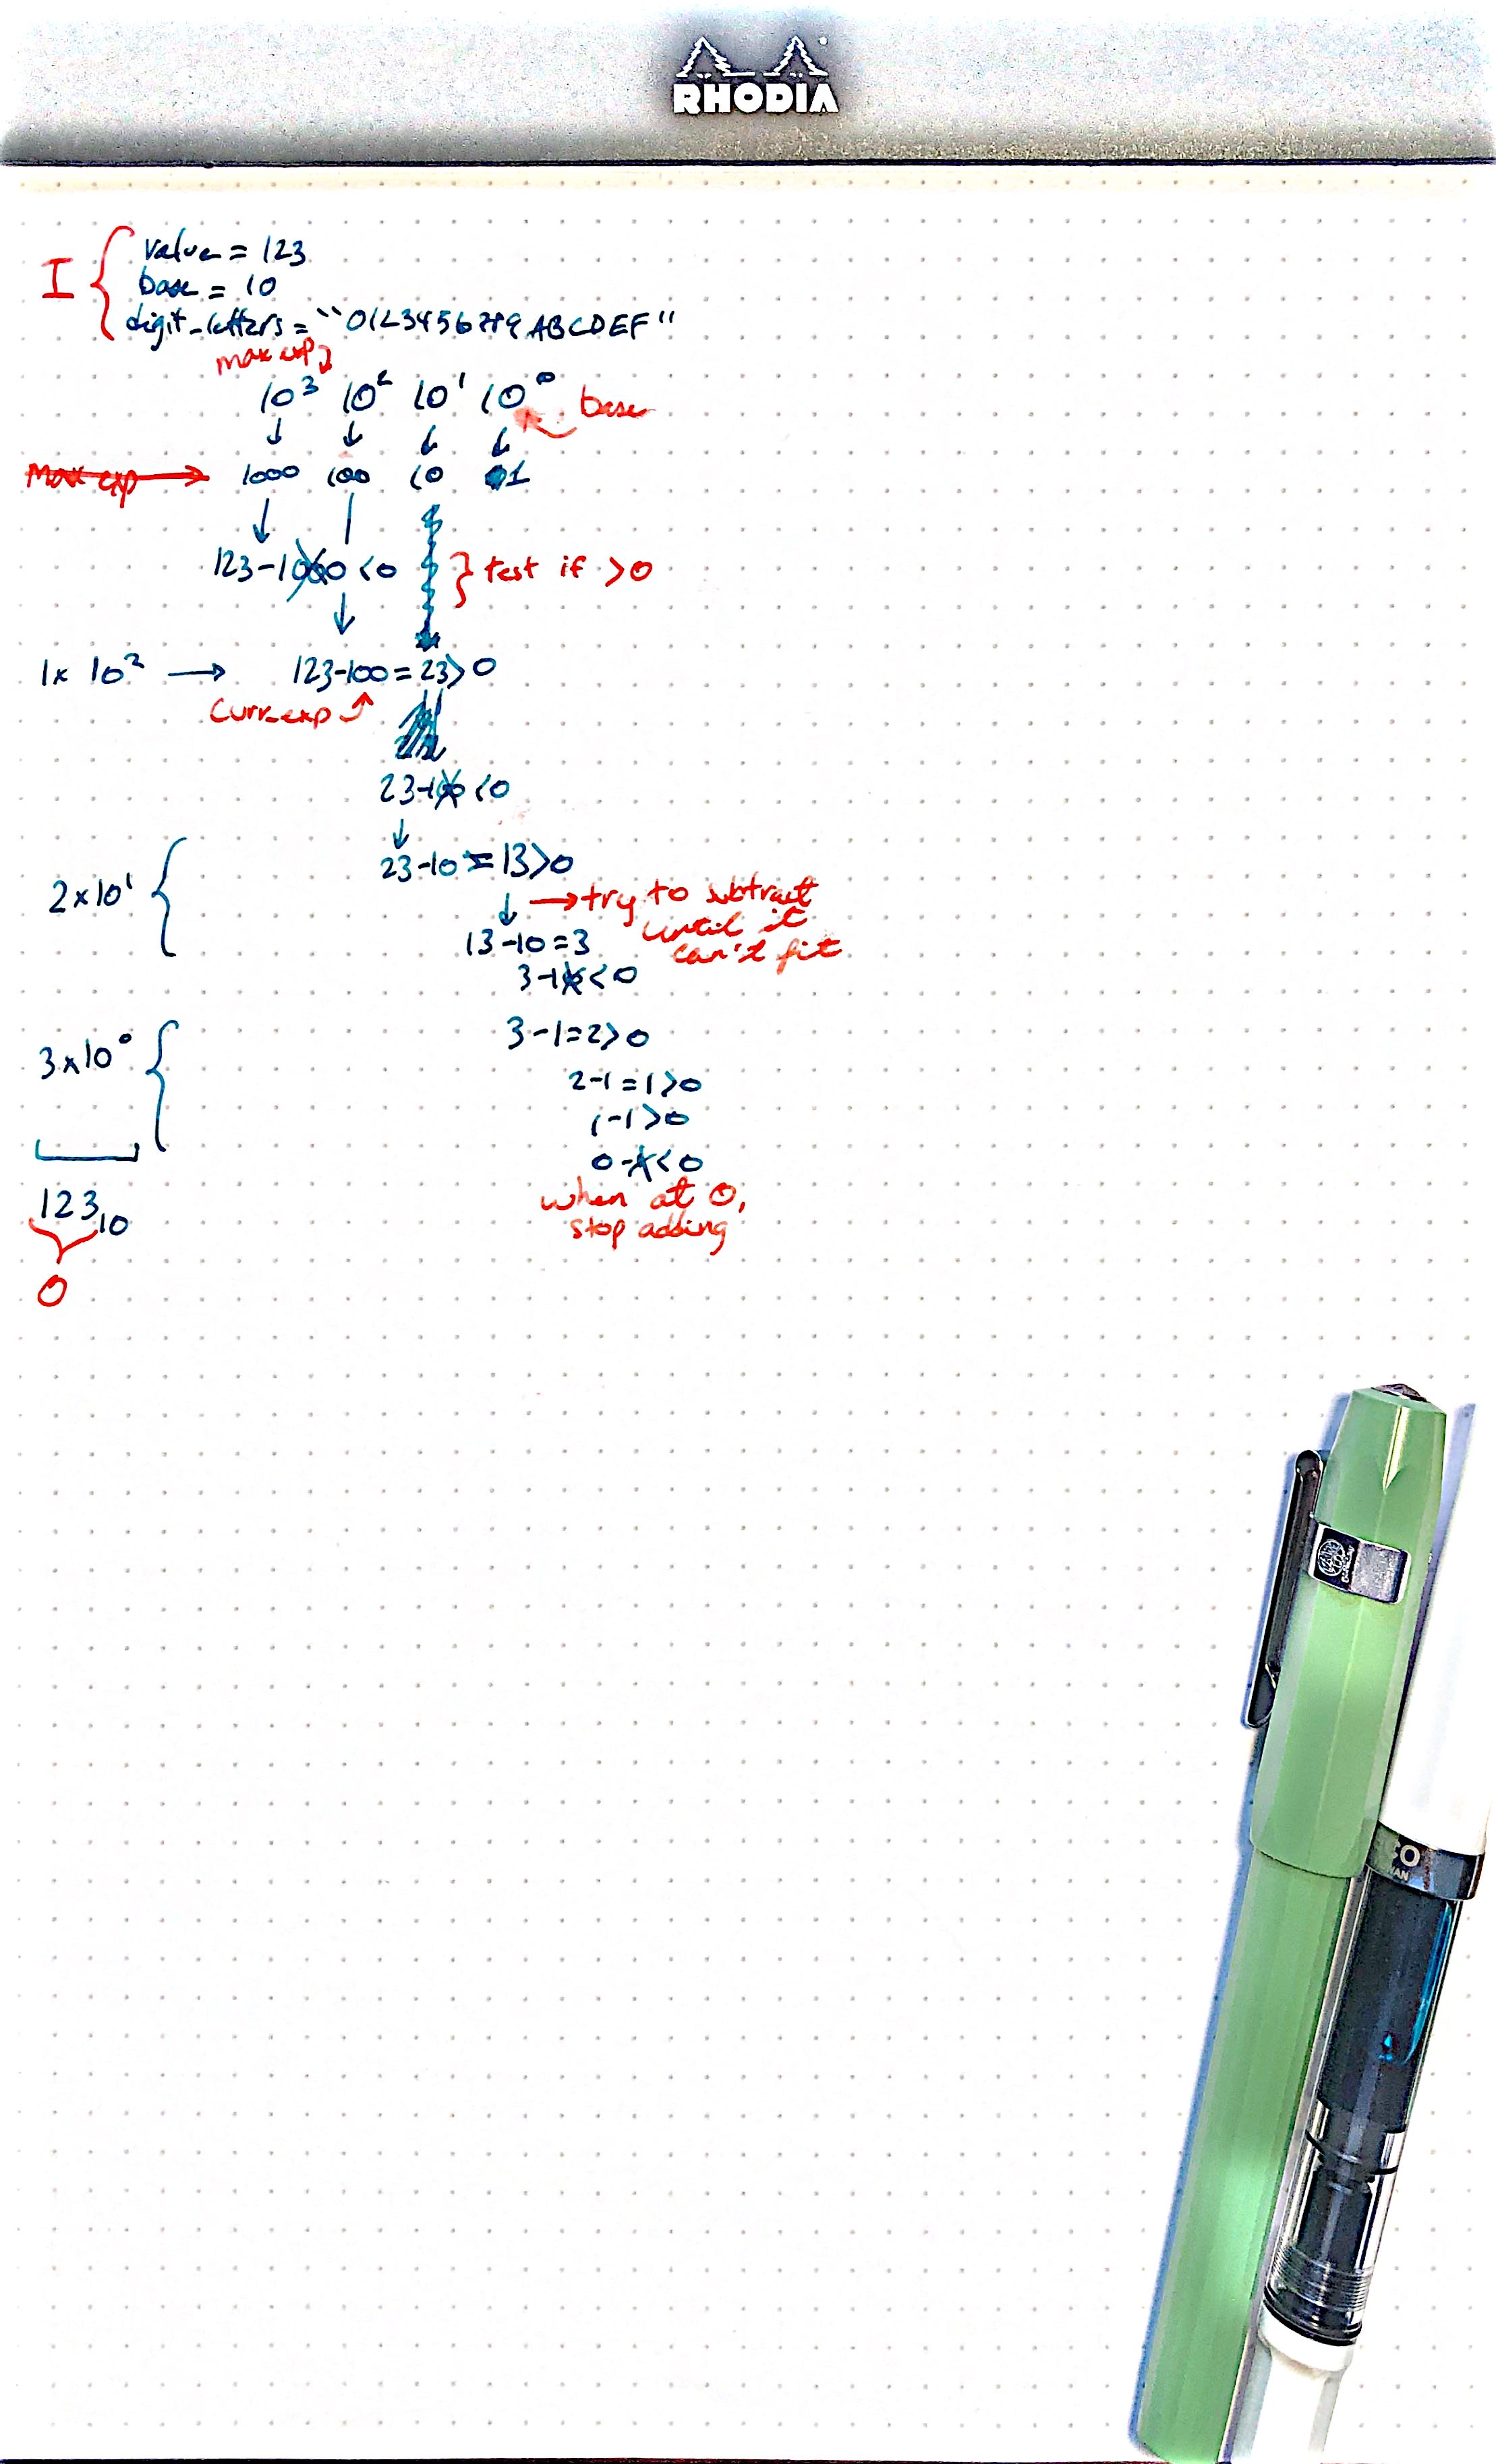 RHODIA
I { value = 123
base = 10
digit_letters = "0123456789ABCDEF"
max exp
10³ 10² 10¹ 10⁰ base
max exp → 1000 100 10 1
123-1000 <0 } test if >0
1x 10² → 123-100=23>0
curr_exp
23-100 <0
2x10¹ { 23-10=13>0
→ try to subtract
until it
can't fit
13-10=3
3-10<0
3x10⁰ { 3-1=2>0
2-1=1>0
1-1>0
0-1<0
when at 0,
stop adding
123₁₀
O
CO